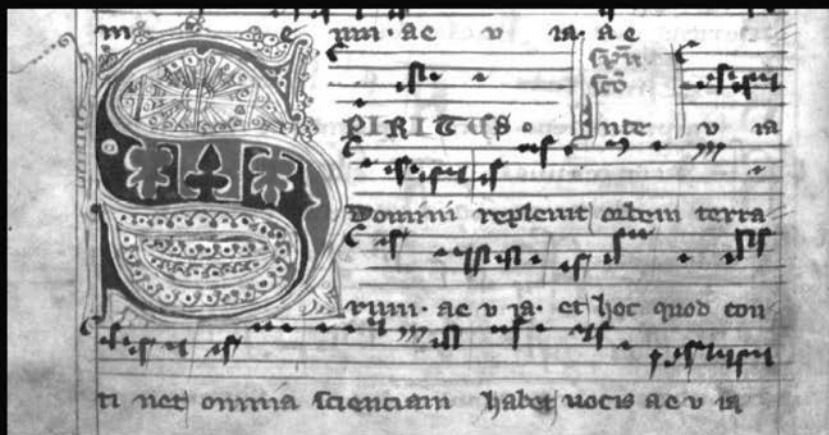 m e um. ae v ia. a e
SPIRITUS. Ante v ia
Domini repleuit orbem terra
rum. ae v ia. et hoc quod con
ti net omnia scienciam habet uocis ae v ia